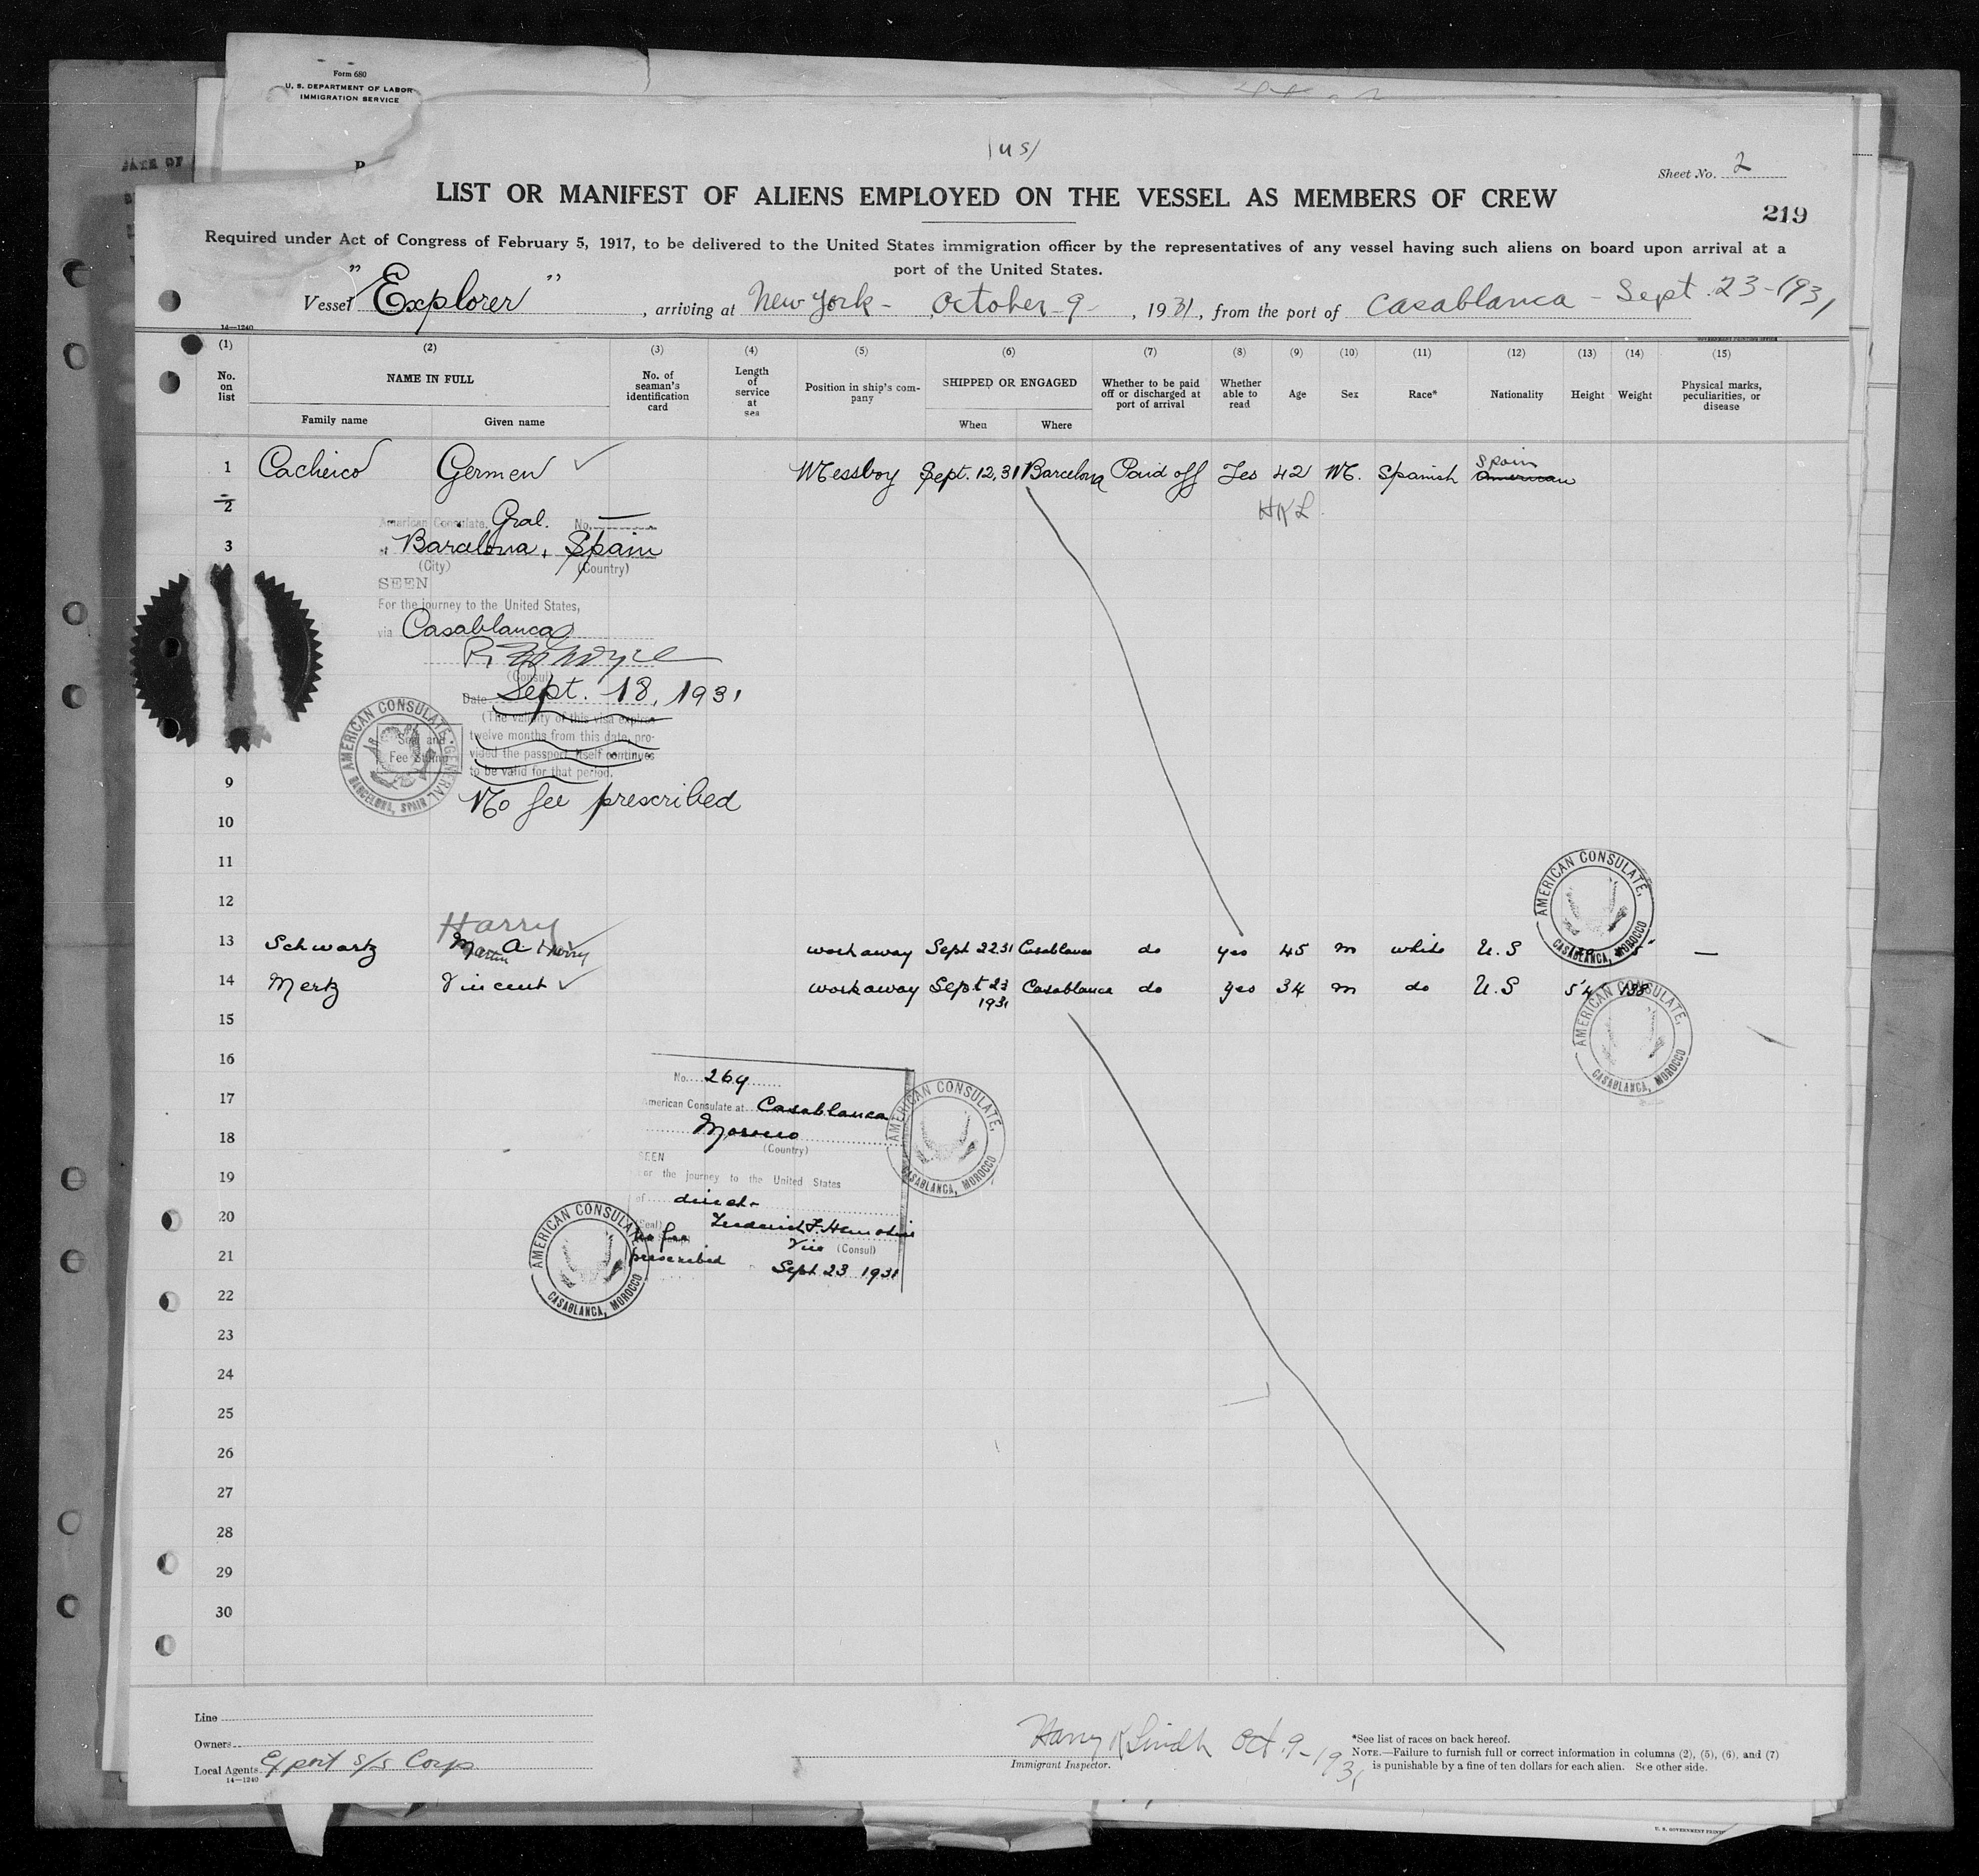 Form 680
U. S. DEPARTMENT OF LABOR
IMMIGRATION SERVICE
DATE OF
P
(us)
Sheet No. 2
LIST OR MANIFEST OF ALIENS EMPLOYED ON THE VESSEL AS MEMBERS OF CREW
219
Required under Act of Congress of February 5, 1917, to be delivered to the United States immigration officer by the representatives of any vessel having such aliens on board upon arrival at a
port of the United States.
Vessel "Explorer", arriving at New York - October 9 -, 1931, from the port of Casablanca - Sept. 23-1931
14—1240
(1) (2) (3) (4) (5) (6) (7) (8) (9) (10) (11) (12) (13) (14) (15)
No. on list
NAME IN FULL
Family name Given name
No. of seaman's identification card
Length of service at sea
Position in ship's company
SHIPPED OR ENGAGED
When Where
Whether to be paid off or discharged at port of arrival
Whether able to read
Age Sex Race* Nationality Height Weight
Physical marks, peculiarities, or disease
1 Cacheico Germen ✓ Messboy Sept. 12, 31 Barcelona Paid off Yes 42 M. Spanish American Spain
2 HKL
American Consulate Gral. No.
3 at Barcelona, Spain
(City) (Country)
SEEN
For the journey to the United States,
via Casablanca
(Consul)
Date Sept. 18, 1931
(The validity of this visa expires
twelve months from this date, pro-
vided the passport itself continues
to be valid for that period.
Seal and
Fee Stamp
AMERICAN CONSULATE GENERAL
BARCELONA, SPAIN
No fee prescribed
9
10
11
12
Harry
13 Schwartz Martin A Harry ✓ workaway Sept 22 31 Casablanca do yes 45 m white U.S 5 —
14 Mertz Vincent ✓ workaway Sept 23 1931 Casablanca do yes 34 m do U.S 5'4" 138
AMERICAN CONSULATE,
CASABLANCA, MOROCCO
AMERICAN CONSULATE,
CASABLANCA, MOROCCO
15
16
No. 269
17 American Consulate at Casablanca
18 Morocco
(Country)
AMERICAN CONSULATE,
CASABLANCA, MOROCCO
SEEN
19 For the journey to the United States
of direct
20 (Seal)
Vice (Consul)
21 No fee prescribed Sept 23 1931
AMERICAN CONSULATE,
CASABLANCA, MOROCCO
22
23
24
25
26
27
28
29
30
Line
Owners
Local Agents Export s/s Corp
14—1240
Harry K Lindh Oct. 9-1931
Immigrant Inspector.
*See list of races on back hereof.
NOTE.—Failure to furnish full or correct information in columns (2), (5), (6), and (7)
is punishable by a fine of ten dollars for each alien. See other side.